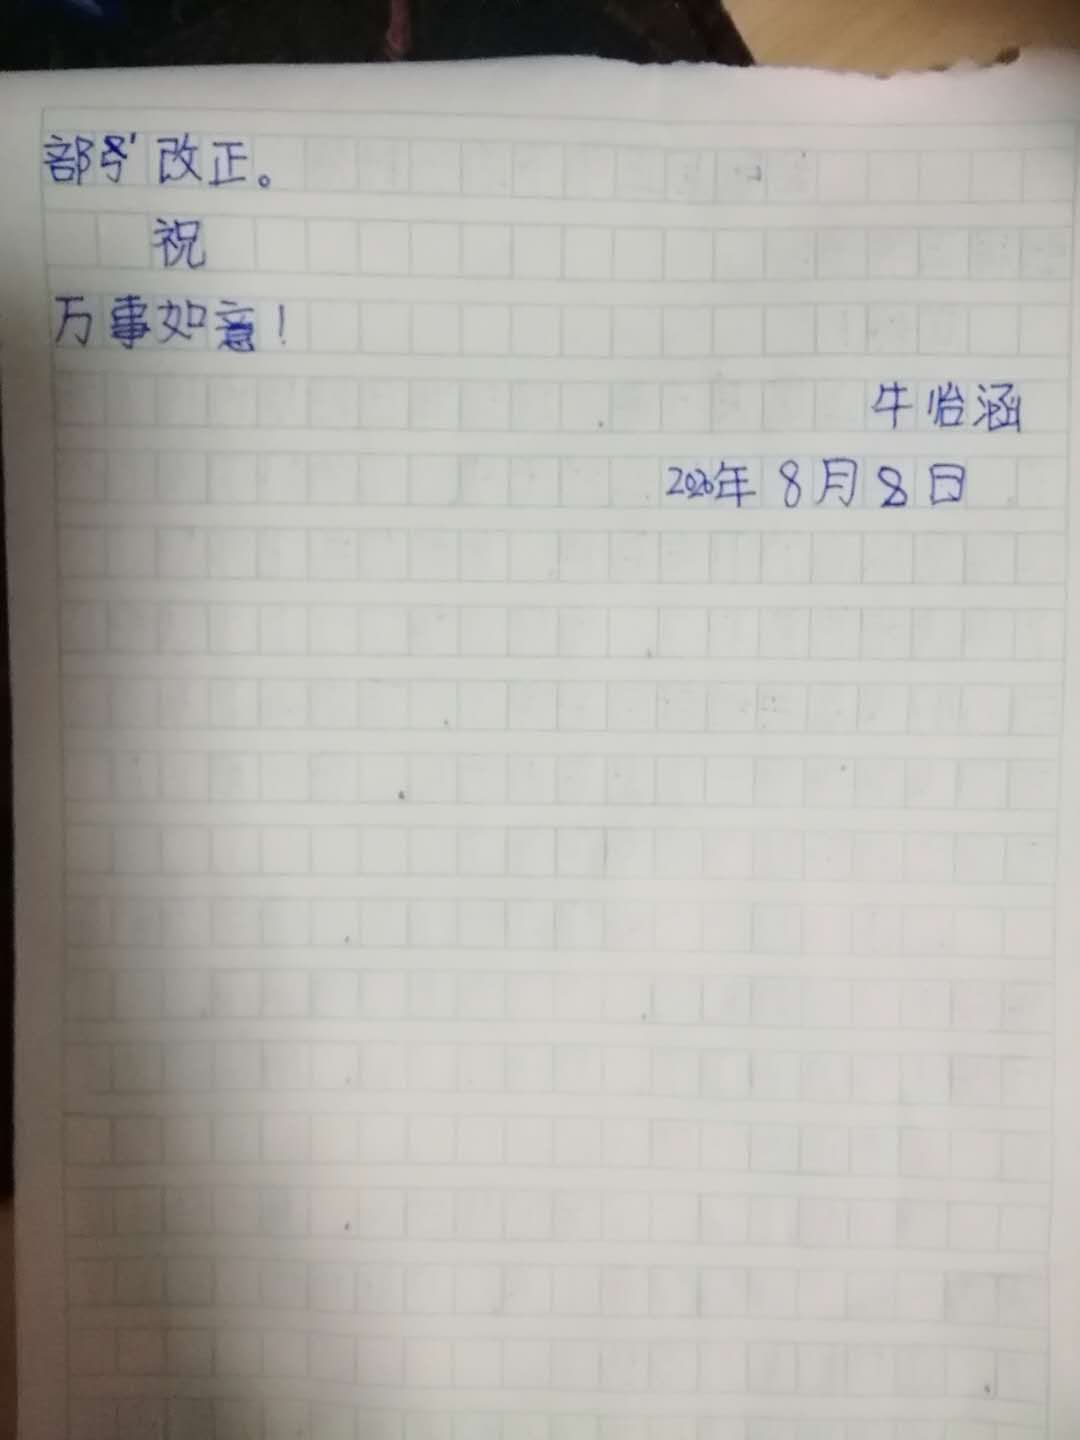 部分改正。
祝
万事如意！
牛怡涵
2020年8月8日